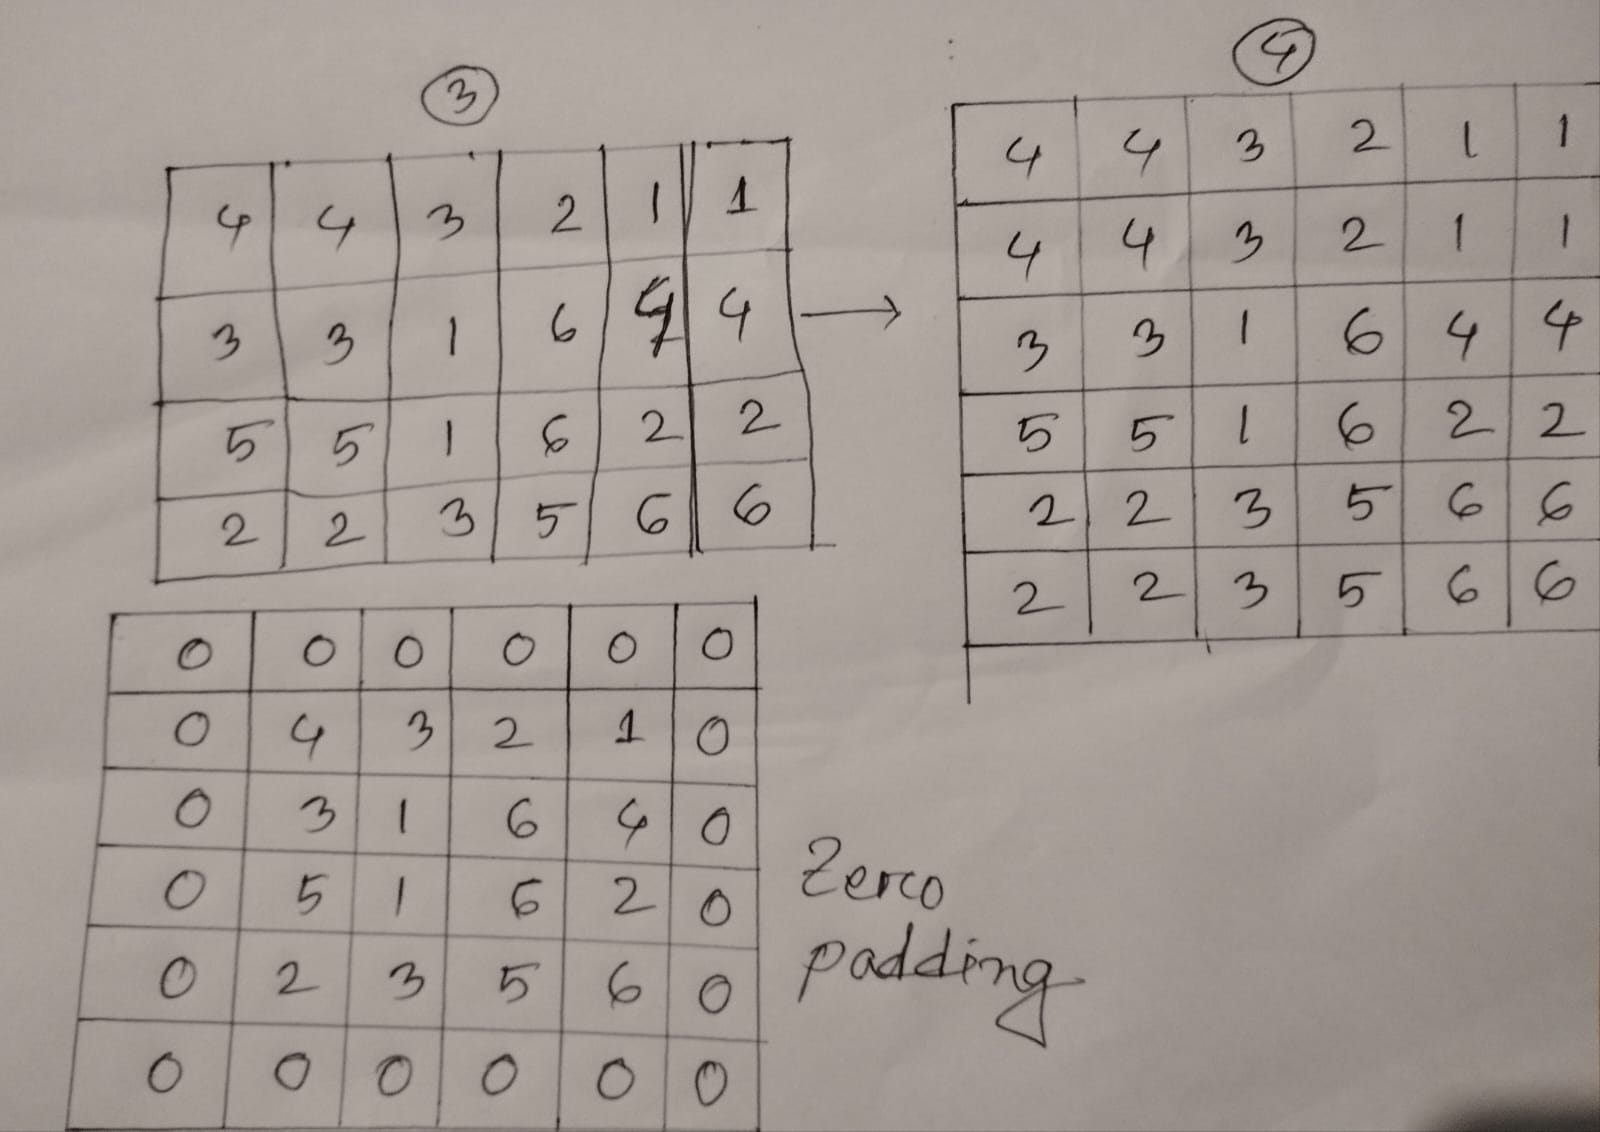 3
4 4 3 2 1 1
3 3 1 6 4 4
5 5 1 6 2 2
2 2 3 5 6 6
4
4 4 3 2 1 1
4 4 3 2 1 1
3 3 1 6 4 4
5 5 1 6 2 2
2 2 3 5 6 6
2 2 3 5 6 6
0 0 0 0 0 0
0 4 3 2 1 0
0 3 1 6 4 0
0 5 1 6 2 0
0 2 3 5 6 0
0 0 0 0 0 0
Zerco
padding